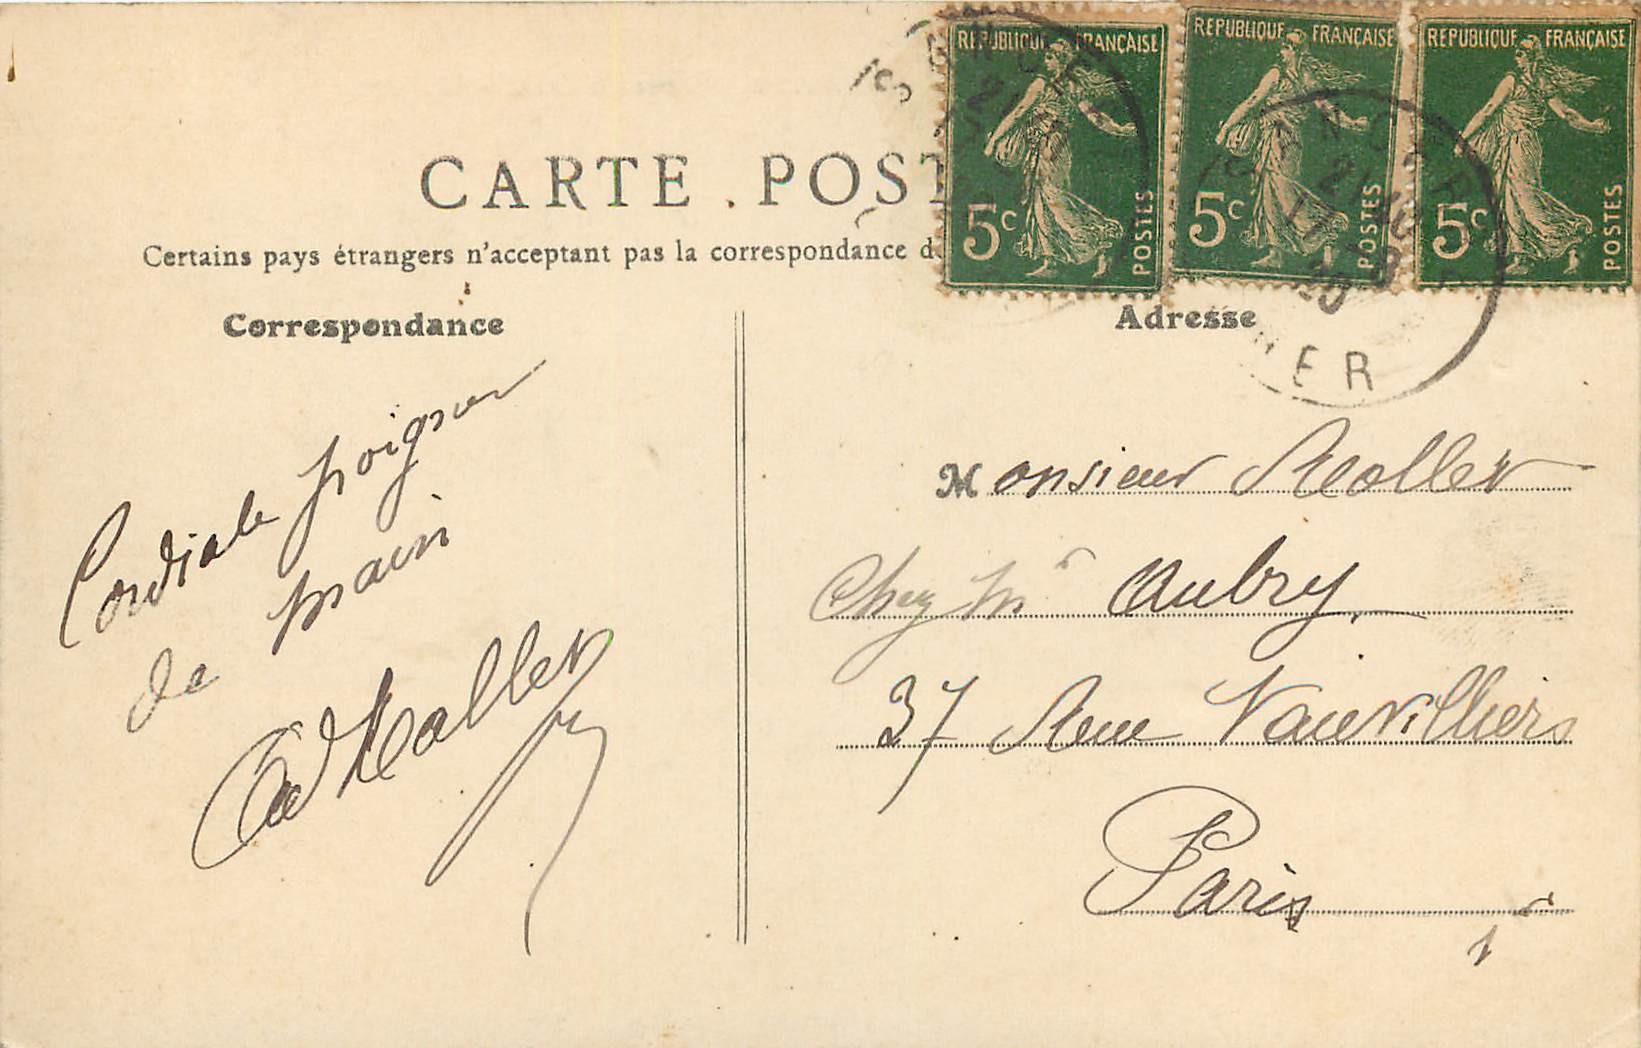 REPUBLIQUE FRANÇAISE
5c POSTES
REPUBLIQUE FRANÇAISE
5c POSTES
REPUBLIQUE FRANÇAISE
5c POSTES
SANCERRE
21
SANCERRE
21
17
20
CHER
CARTE POST
Certains pays étrangers n'acceptant pas la correspondance d
Correspondance
Cordiale poignée
de main
Adresse
Monsieur
Chez Mr Aubry,
37 Rue Vauvilliers
Paris
1r